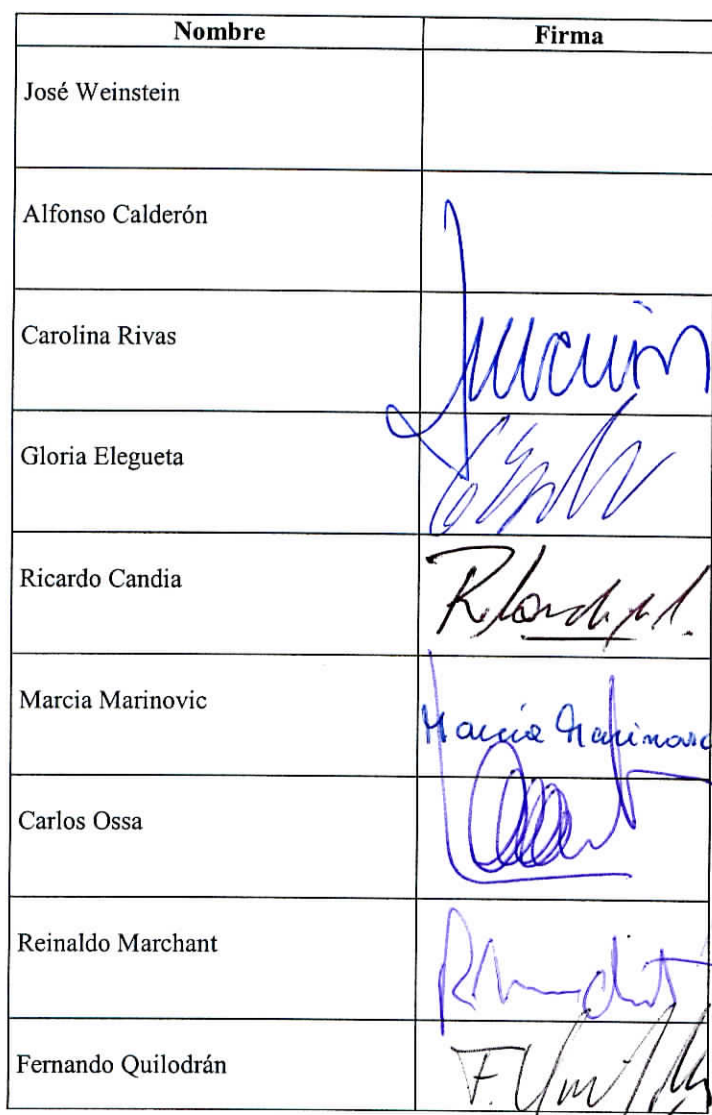 Nombre Firma
José Weinstein
Alfonso Calderón
Carolina Rivas
Gloria Elegueta
Ricardo Candia
Marcia Marinovic Marcia Marinovic
Carlos Ossa
Reinaldo Marchant
Fernando Quilodrán